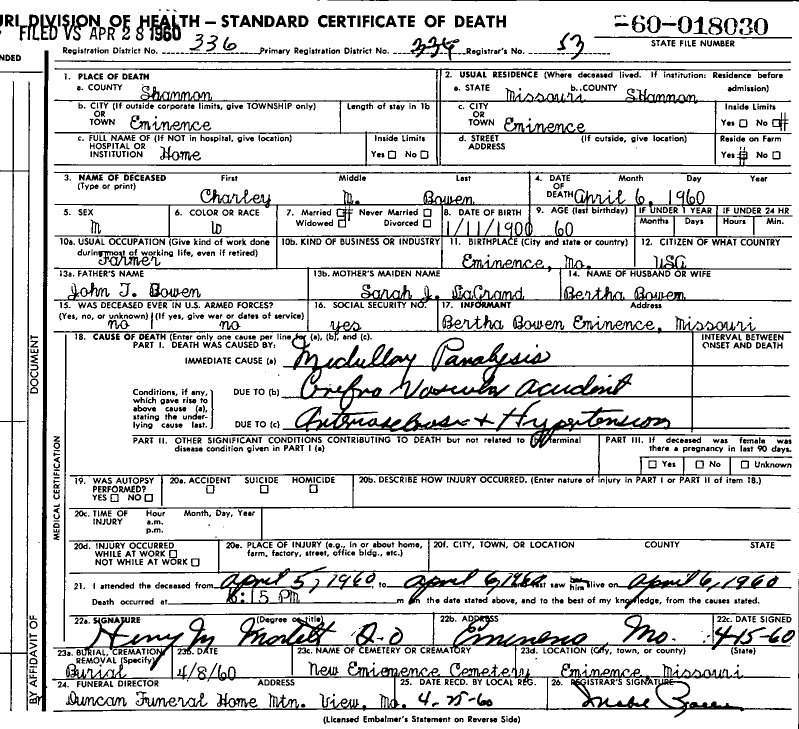 URI DIVISION OF HEALTH — STANDARD CERTIFICATE OF DEATH
-60-018030
FILED VS APR 28 1960
Registration District No. 336 Primary Registration District No. 336 Registrar's No. 53 STATE FILE NUMBER
NDED
1. PLACE OF DEATH 2. USUAL RESIDENCE (Where deceased lived. If institution: Residence before admission)
a. COUNTY Shannon a. STATE Missouri b. COUNTY SHannon
b. CITY (If outside corporate limits, give TOWNSHIP only) Length of stay in 1b c. CITY Inside Limits
OR TOWN Eminence OR TOWN Eminence Yes ☐ No ☒
c. FULL NAME OF (If NOT in hospital, give location) Inside Limits d. STREET (If outside, give location) Reside on Farm
HOSPITAL OR INSTITUTION Home Yes ☐ No ☐ ADDRESS Yes ☒ No ☐
3. NAME OF DECEASED First Middle Last 4. DATE Month Day Year
(Type or print) Charley M. Bowen OF DEATH April 6, 1960
5. SEX 6. COLOR OR RACE 7. Married ☒ Never Married ☐ 8. DATE OF BIRTH 9. AGE (last birthday) IF UNDER 1 YEAR IF UNDER 24 HR
M W Widowed ☐ Divorced ☐ 1/11/1900 60 Months Days Hours Min.
10a. USUAL OCCUPATION (Give kind of work done 10b. KIND OF BUSINESS OR INDUSTRY 11. BIRTHPLACE (City and state or country) 12. CITIZEN OF WHAT COUNTRY
during most of working life, even if retired)
Farmer Eminence, Mo. USA
13a. FATHER'S NAME 13b. MOTHER'S MAIDEN NAME 14. NAME OF HUSBAND OR WIFE
John T. Bowen Sarah J. LaGrand Bertha Bowen
15. WAS DECEASED EVER IN U.S. ARMED FORCES? 16. SOCIAL SECURITY NO. 17. INFORMANT Address
(Yes, no, or unknown) (If yes, give war or dates of service)
no no yes Bertha Bowen Eminence, Missouri
18. CAUSE OF DEATH (Enter only one cause per line for (a), (b), and (c). INTERVAL BETWEEN
PART I. DEATH WAS CAUSED BY: ONSET AND DEATH
IMMEDIATE CAUSE (a) Medullay Paralysis
Conditions, if any, which gave rise to above cause (a), stating the underlying cause last.
DUE TO (b) Cerebro Vascular acudent
DUE TO (c) Arteriosclerosis + Hypertension
PART II. OTHER SIGNIFICANT CONDITIONS CONTRIBUTING TO DEATH but not related to the terminal PART III. If deceased was female was
disease condition given in PART I (a) there a pregnancy in last 90 days.
☐ Yes ☐ No ☐ Unknown
19. WAS AUTOPSY 20a. ACCIDENT SUICIDE HOMICIDE 20b. DESCRIBE HOW INJURY OCCURRED. (Enter nature of injury in PART I or PART II of item 18.)
PERFORMED?
YES ☐ NO ☐ ☐ ☐ ☐
20c. TIME OF Hour Month, Day, Year
INJURY a.m.
p.m.
20d. INJURY OCCURRED 20e. PLACE OF INJURY (e.g., in or about home, 20f. CITY, TOWN, OR LOCATION COUNTY STATE
WHILE AT WORK ☐ farm, factory, street, office bldg., etc.)
NOT WHILE AT WORK ☐
21. I attended the deceased from April 5, 1960 to April 6, 1960 last saw him alive on April 6, 1960
Death occurred at 6:15 PM m on the date stated above, and to the best of my knowledge, from the causes stated.
22a. SIGNATURE (Degree or title) 22b. ADDRESS 22c. DATE SIGNED
Henry M D.O Eminence, Mo. 4-15-60
23a. BURIAL, CREMATION, 23b. DATE 23c. NAME OF CEMETERY OR CREMATORY 23d. LOCATION (City, town, or county) (State)
REMOVAL (Specify)
Burial 4/8/60 New Emienence Cemetery Eminence Missouri
24. FUNERAL DIRECTOR ADDRESS 25. DATE RECD. BY LOCAL REG. 26. REGISTRAR'S SIGNATURE
Duncan Funeral Home Mtn. View, Mo. 4-25-60 Mabel
(Licensed Embalmer's Statement on Reverse Side)
DOCUMENT
MEDICAL CERTIFICATION
BY AFFIDAVIT OF